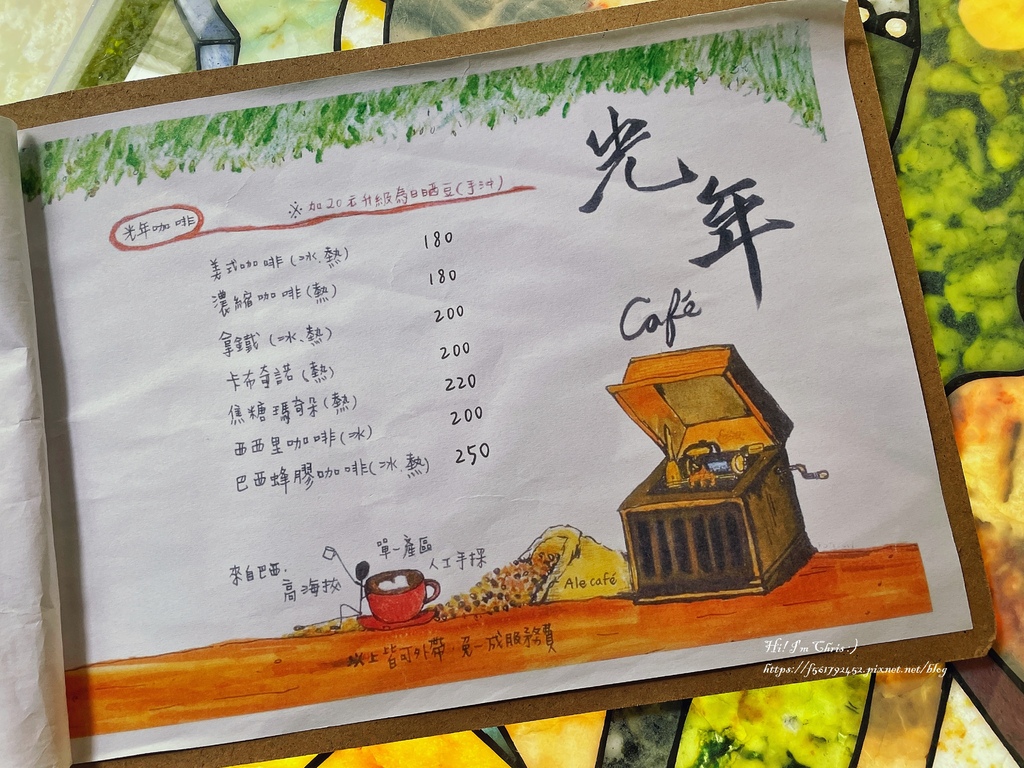 光年
Café
光年咖啡
※加20元升級為日晒豆(手沖)
美式咖啡(冰.熱) 180
濃縮咖啡(熱) 180
拿鐵(冰.熱) 200
卡布奇諾(熱) 200
焦糖瑪奇朵(熱) 220
西西里咖啡(冰) 200
巴西蜂膠咖啡(冰.熱) 250
來自巴西.
高海拔
單一產區
人工手採
Ale café
以上皆可外帶.免一成服務費
Hi! I'm Chris :)
https://f561792452.pixnet.net/blog